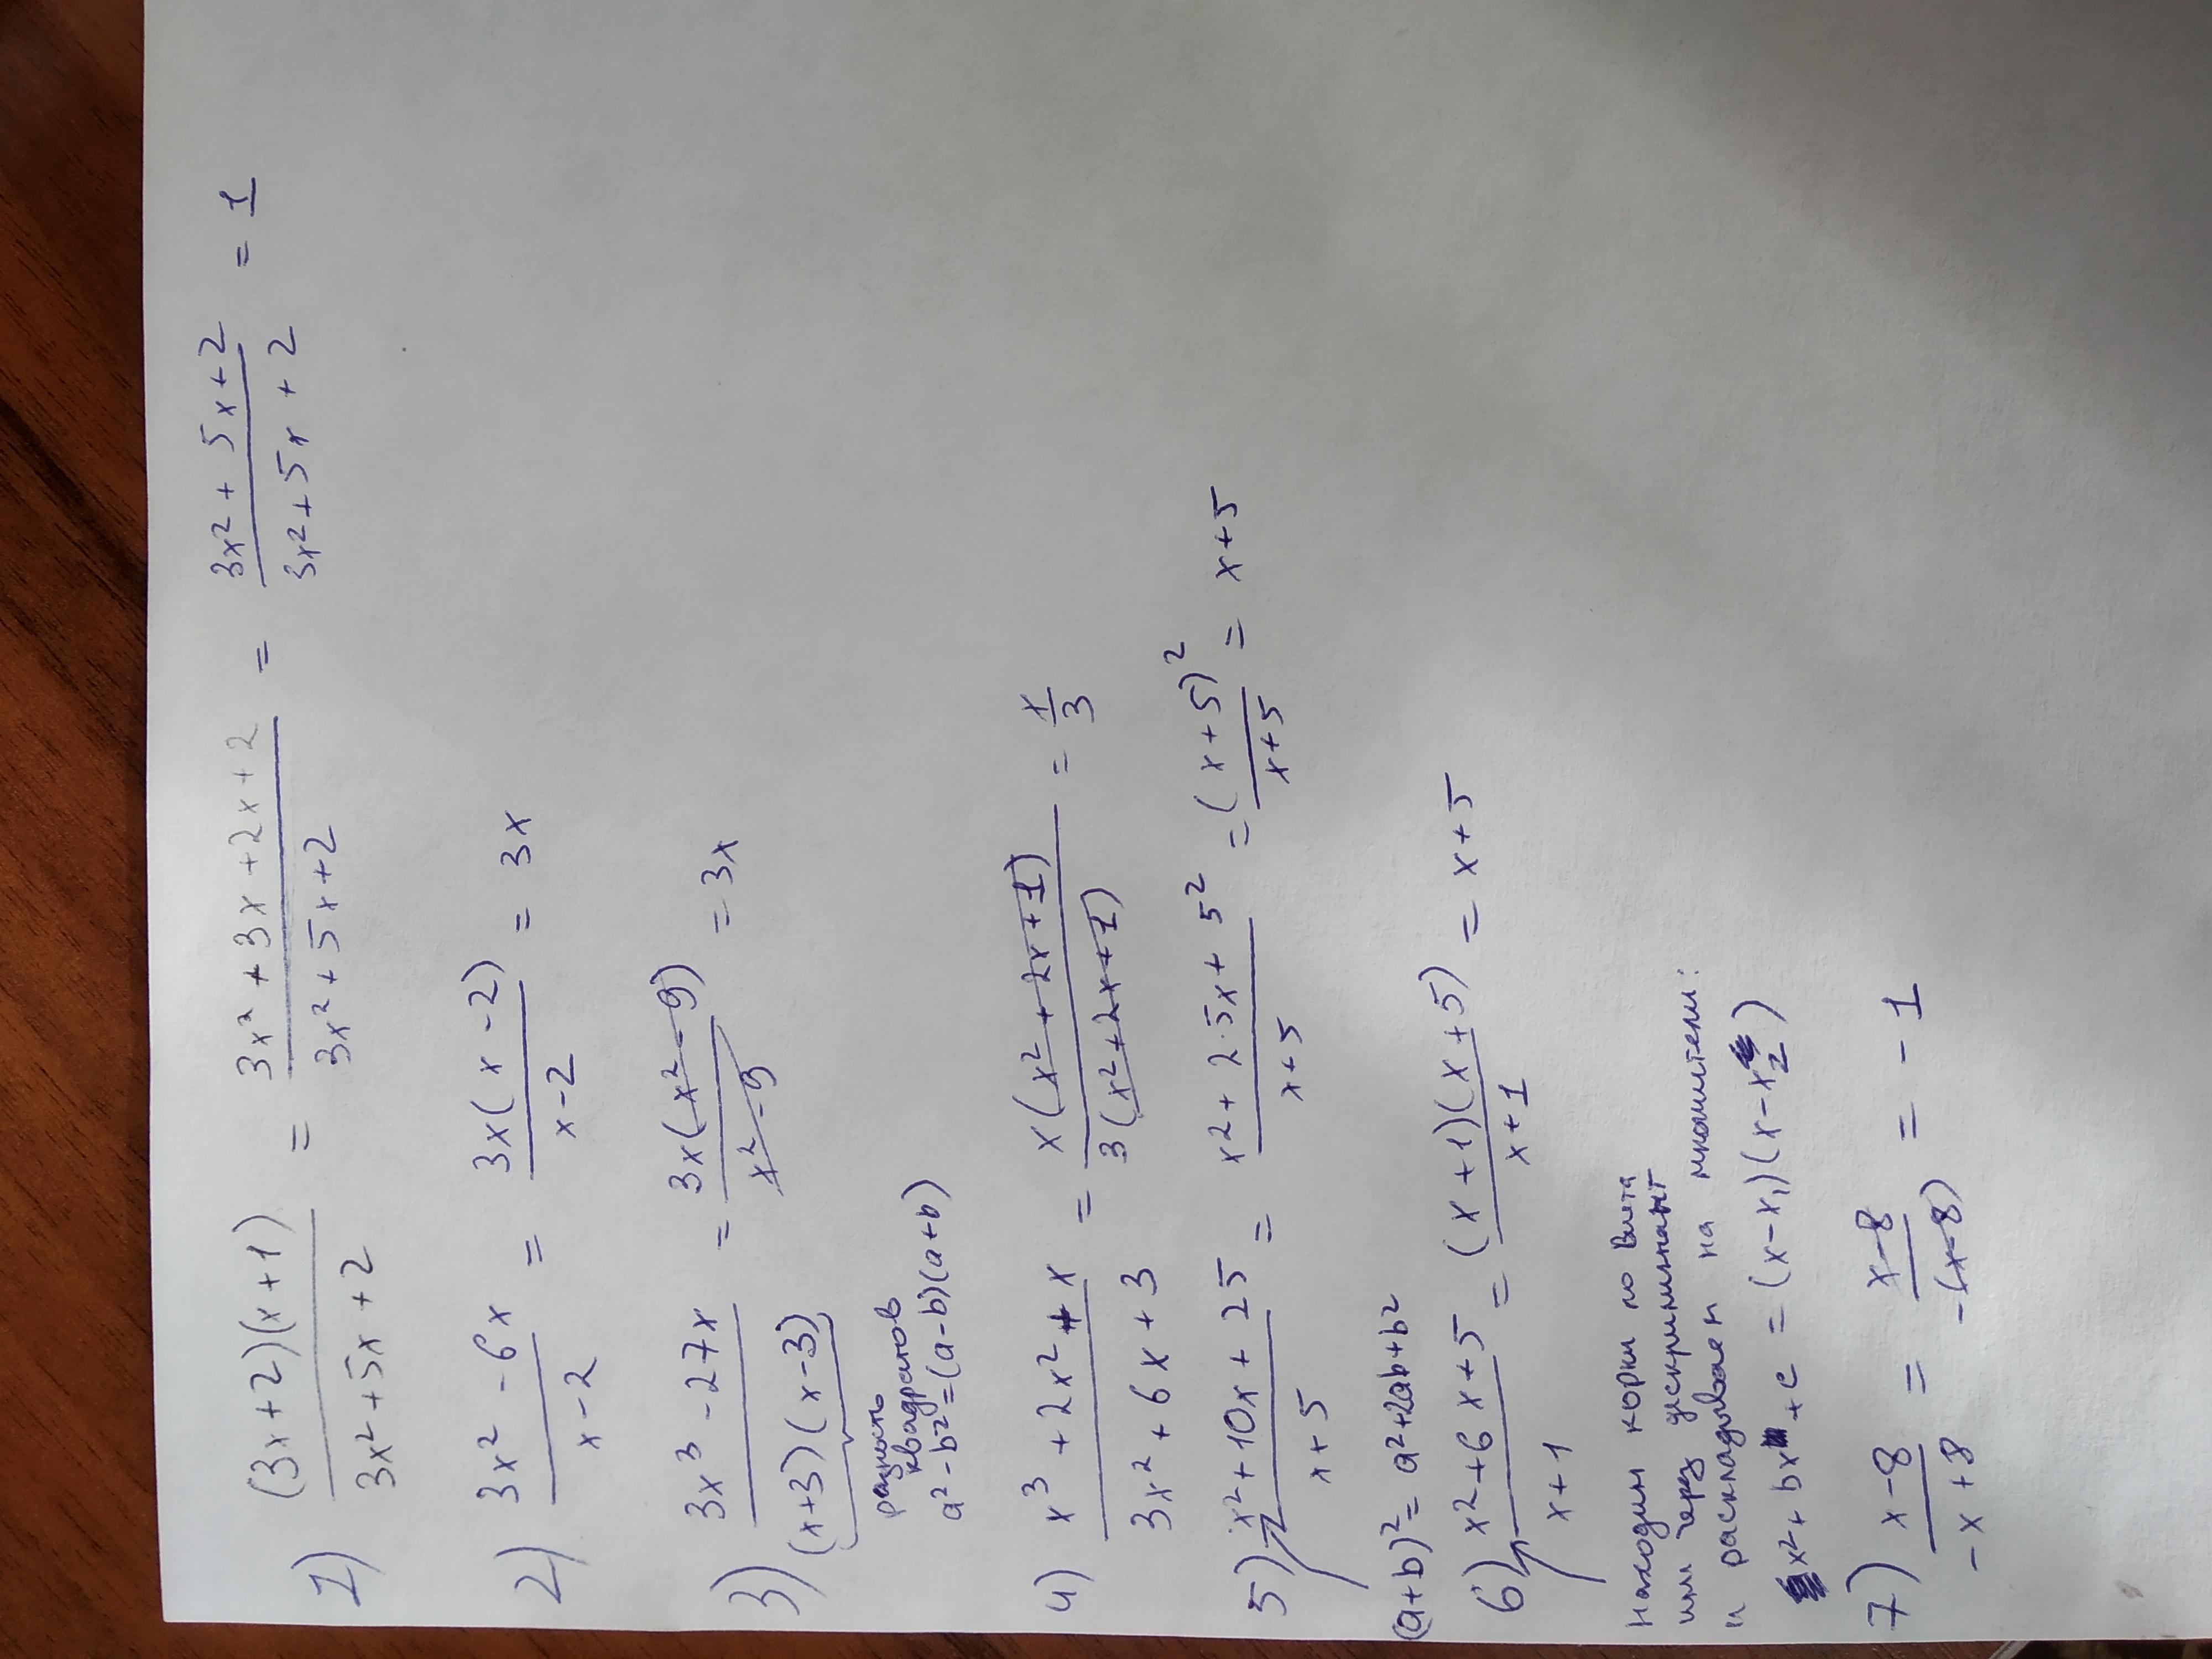 1) (3x+2)(x+1) / 3x²+5x+2 = 3x²+3x+2x+2 / 3x²+5x+2 = 3x²+5x+2 / 3x²+5x+2 = 1
2) 3x²-6x / x-2 = 3x(x-2) / x-2 = 3x
3) 3x³-27x / (x+3)(x-3) = 3x(x²-9) / x²-9 = 3x
разность
квадратов
a²-b²=(a-b)(a+b)
4) x³+2x²+x / 3x²+6x+3 = x(x²+2x+1) / 3(x²+2x+1) = x/3
5) x²+10x+25 / x+5 = x²+2·5x+5² / x+5 = (x+5)² / x+5 = x+5
(a+b)²=a²+2ab+b²
6) x²+6x+5 / x+1 = (x+1)(x+5) / x+1 = x+5
находим корни по Виета
или через дескриминант
и раскладываем на множители:
x²+bx+c=(x-x₁)(x-x₂)
7) x-8 / -x+8 = x-8 / -(x-8) = -1